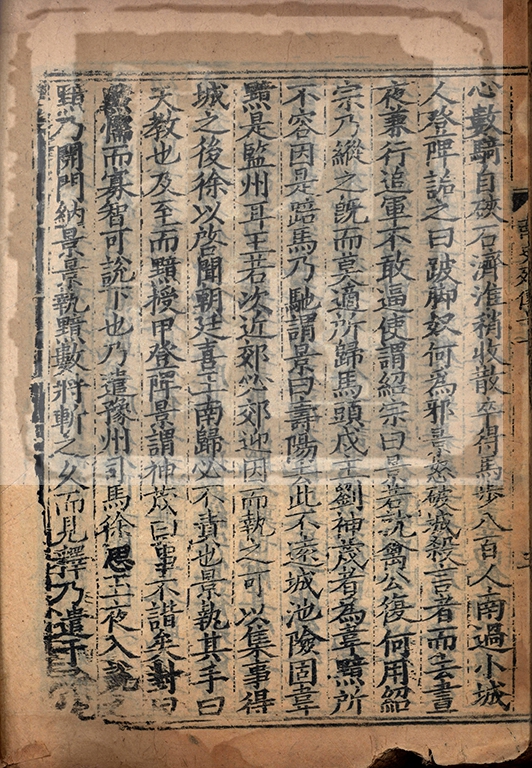 心數騎自硤石濟淮稍收散卒得馬步八百人南過小城
人登陴詬之曰跛脚奴何為邪景怒破城殺言者而去晝
夜兼行追軍不敢逼使謂紹宗曰景若就禽公復何用紹
宗乃縱之旣而莫適所歸馬頭戍主劉神茂者為韋黯所
不容因是踣馬乃馳謂景曰壽陽去此不遠城池險固韋
黯是監州耳王若次近郊必郊迎因而執之可以集事得
城之後徐以啓聞朝廷喜王南歸必不責也景執其手曰
天教也及至而黯授甲登陴景謂神茂曰事不諧矣對曰
懦而寡智可說下也乃遣豫州司馬徐思玉夜入說之
黯乃開門納景景執黯數將斬之久而見釋乃遣于